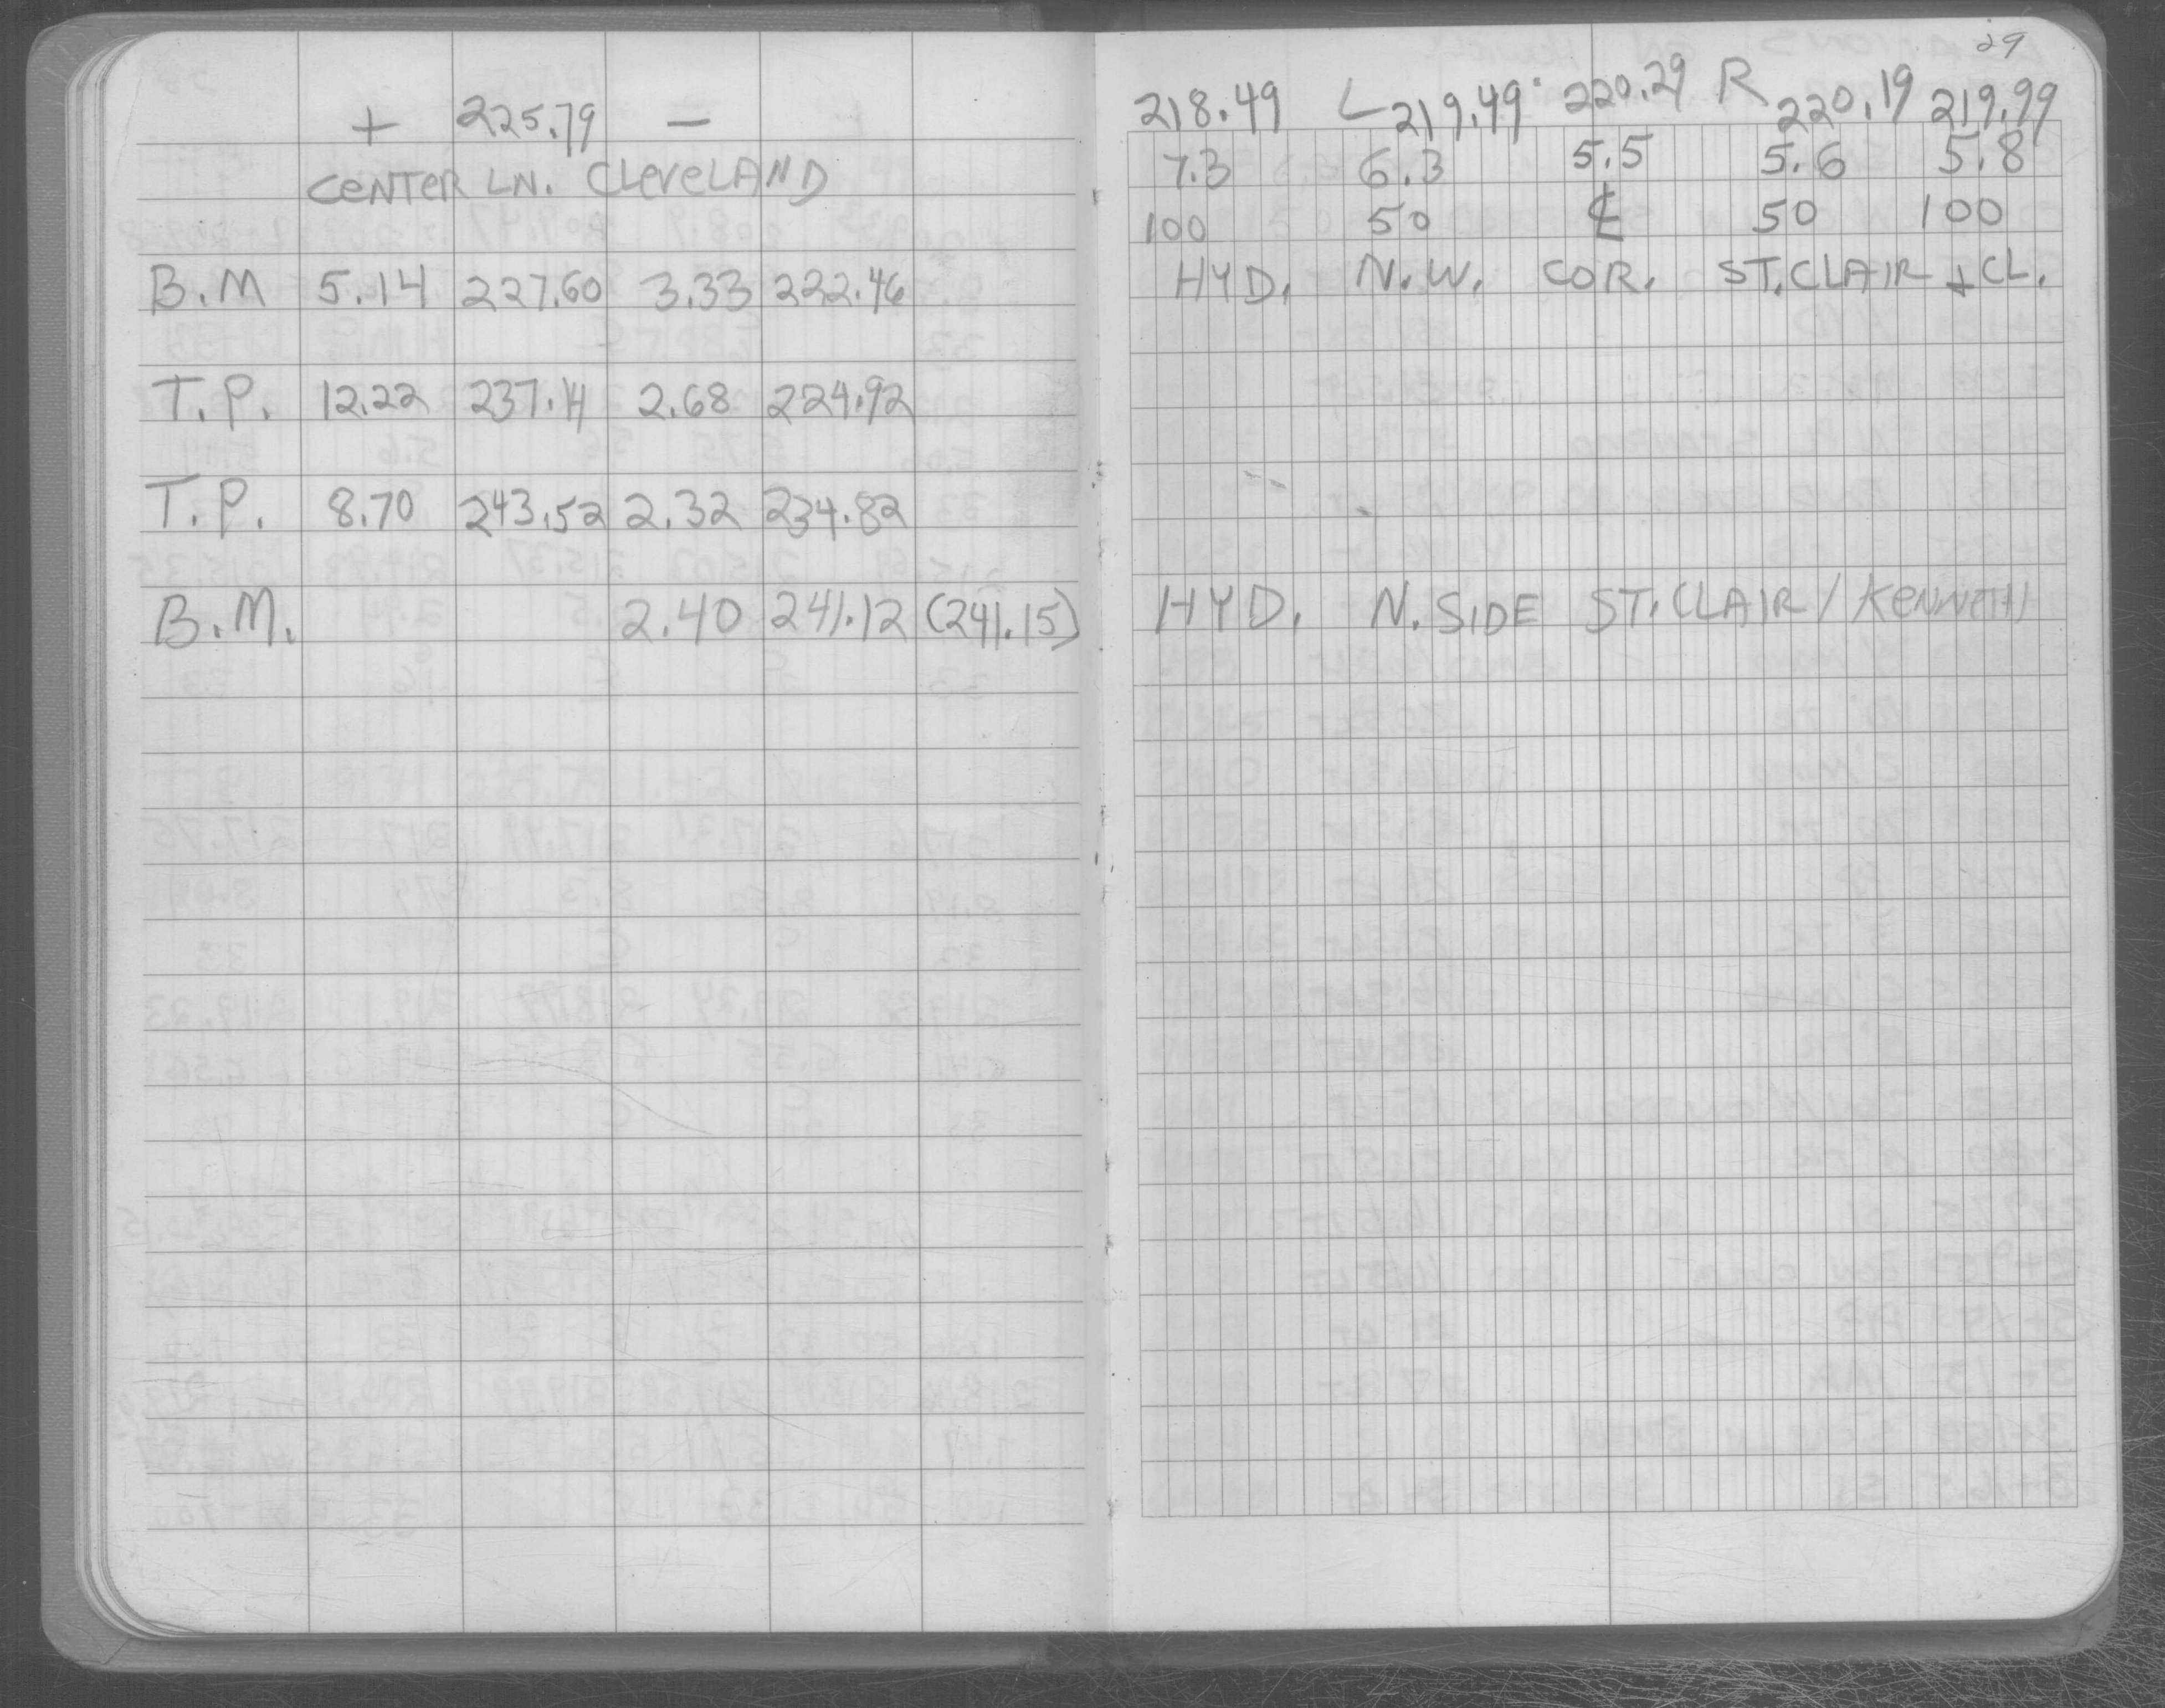 29
+ 225.79 −
CENTER LN. CLEVELAND
B.M 5.14 227.60 3.33 222.46
T.P. 12.22 237.14 2.68 224.92
T.P. 8.70 243.52 2.32 234.82
B.M. 2.40 241.12 (241.15)
218.49 L 219.49 220.29 R 220.19 219.99
7.3 6.3 5.5 5.6 5.8
100 50 ℄ 50 100
HYD. N.W. COR. ST.CLAIR + CL.
HYD. N. SIDE ST.CLAIR / KENNETH